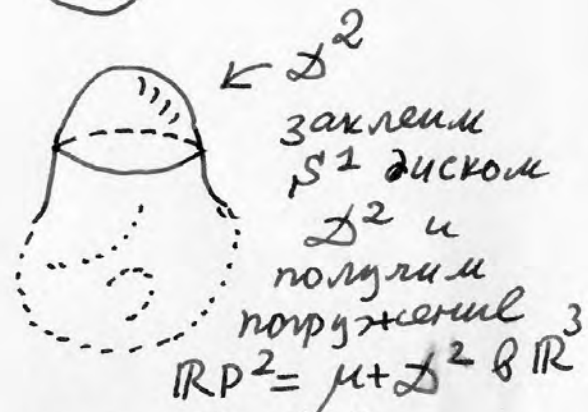 ← D²
заклеим
S¹ диском
D² и
получим
погружение
RP² = μ + D² в R³